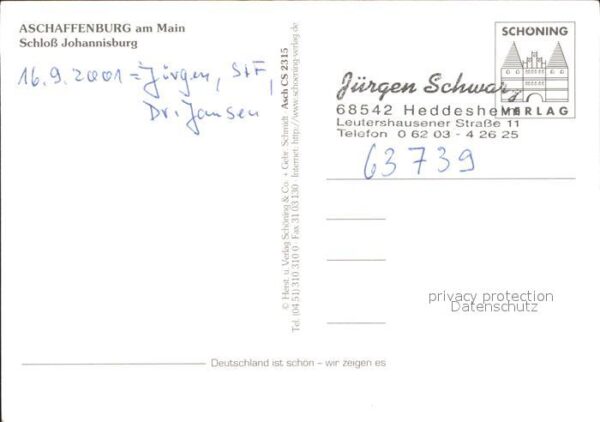 ASCHAFFENBURG am Main
Schloß Johannisburg
16.9.2001 = Jürgen, StF,
Dr. Jansen
© Herst. u. Verlag Schöning & Co. + Gebr. Schmidt · Asch CS 2315
Tel. (04 51) 310 310 0 · Fax 31 03 130 · Internet: http://www.schoening-verlag.de
SCHÖNING
VERLAG
Jürgen Schwarz
68542 Heddesheim
Leutershausener Straße 11
Telefon 0 62 03 - 4 26 25
63739
privacy protection
Datenschutz
Deutschland ist schön – wir zeigen es